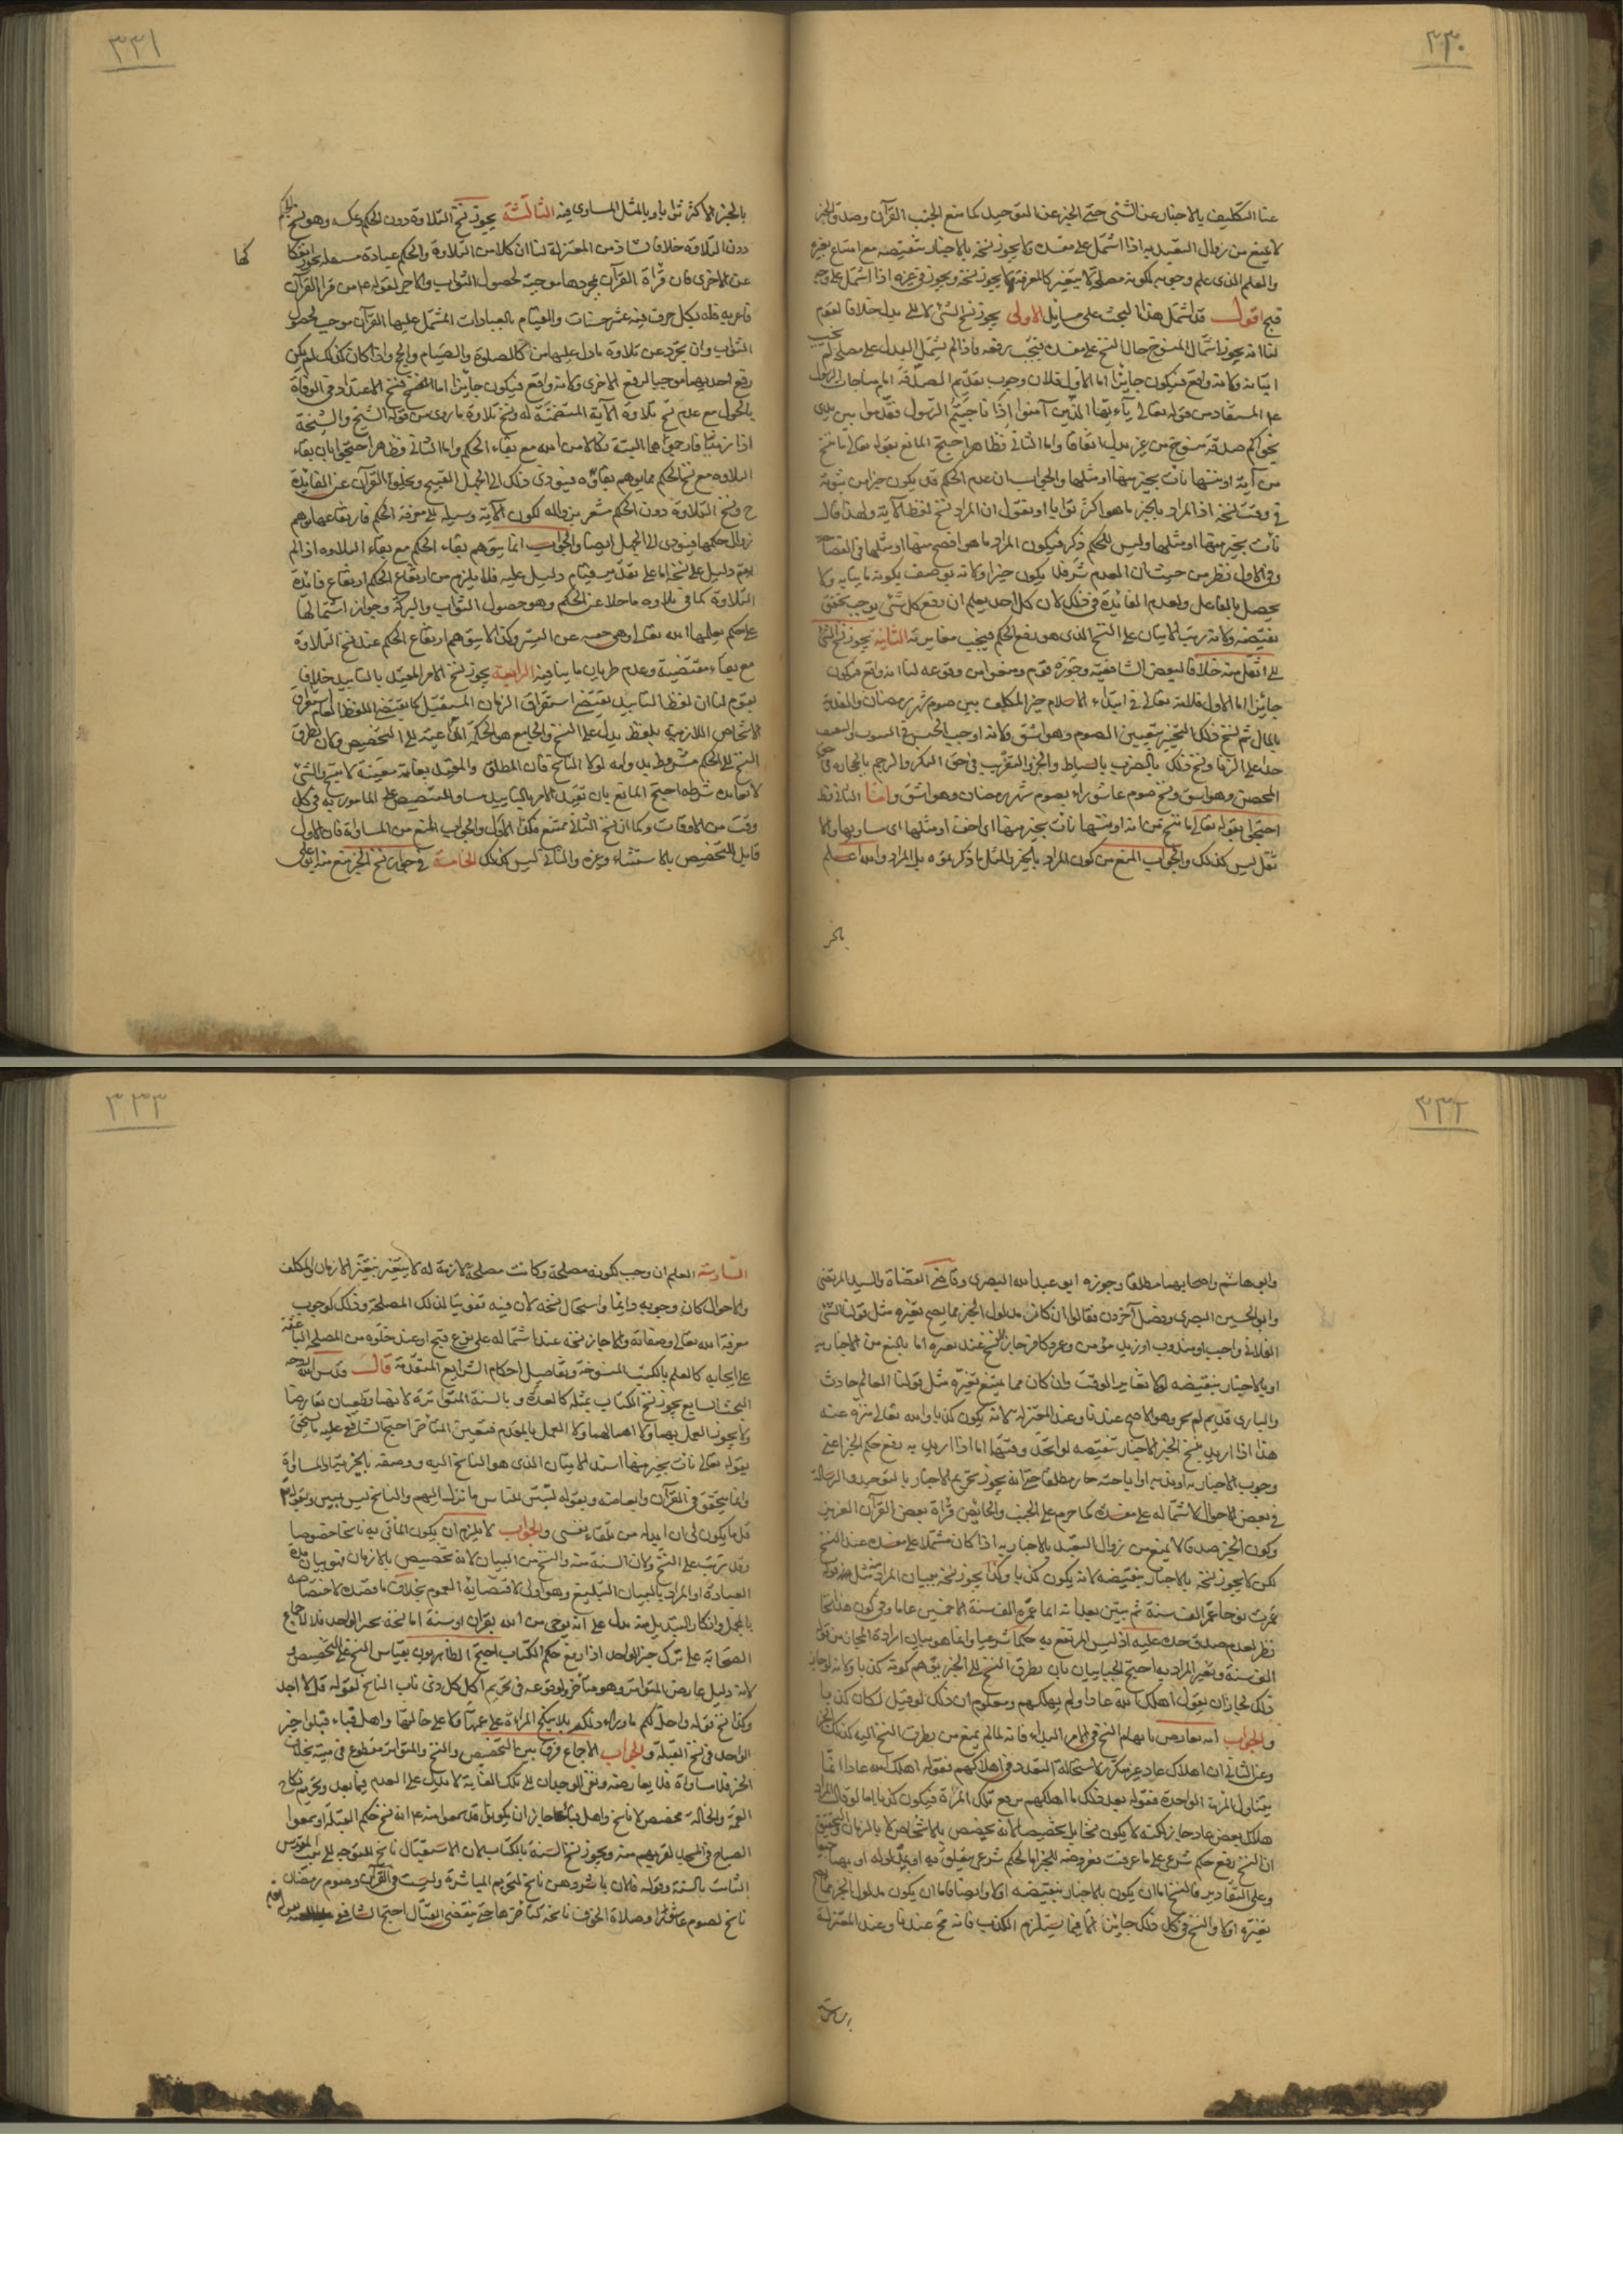 ٣٣٠
عنا التكليف بالاخبار عن الشئ حتى الخبر عن التوحيد كما منع الجنب القرآن وصدق الخبر
لا يمنع من زوال التعبد به اذا اشتمل على مفسدة ولا يجوز نسخه بالاخبار بنقيضه مع امتناع تغيره
والعلم الذى علم وجوبه لكونه مصلحة لا يتغير كالمعرفة لا يجوز نسخه ويجوز فى غيره اذا اشتمل على وجه
قبح اقول قد اشتمل هذا البحث على مسايل الاولى يجوز نسخ الشئ لا الى بدل خلافا لقوم
لنا انه يجوز اشتمال المنسوخ حال النسخ على مفسدة فيجب رفعه فاذا لم يشتمل البدل على مصلحة لم يجب
اثباته ولانه واقع فيكون جايزا اما الاول فلان وجوب تقديم الصدقة امام مناجات الرسول
عم المستفاد من قوله تعالى يا ايها الذين آمنوا اذا ناجيتم الرسول فقدموا بين يدى
نجواكم صدقة منسوخ من غير بدل اتفاقا واما الثانى فظاهر احتج المانع بقوله تعالى ما ننسخ
من آية او ننسها نأت بخير منها او مثلها والجواب ان عدم الحكم قد يكون خيرا من ثبوته
فى وقت نسخه اذ المراد بالخير ما هو اكثر ثوابا او نقول ان المراد نسخ لفظ الآية ولهذا قال
نأت بخير منها او مثلها وليس للحكم ذكر فيكون المراد ما هو افصح منها او مثلها فى الفصاحة
وفى الاول نظر من حيث ان العدم شر فلا يكون خيرا ولانه يوصف بكونه ماتيا به ولا
يحصل بالفاعل ولعدم الفائدة فى ذلك لان كل احد يعلم ان رفع كل شئ يوجب تحقق
نقيضه ولانه رتب الاتيان على النسخ الذى هو رفع الحكم فيجب مغايرته الثانيه يجوز نسخ الشئ
الى اثقل منه خلافا لبعض الشافعية وجوزه قوم ومنعوا من وقوعه لنا انه واقع فيكون
جايزا اما الاول فلانه تعالى فى ابتداء الاسلام خير المكلف بين صوم شهر رمضان والفدية
بالمال ثم نسخ ذلك التخيير بتعيين الصوم وهو اشق ولانه اوجب الحبس فى البيوت والتعنيف
حدا على الزنا ونسخ ذلك بالضرب بالسياط والجز والتغريب فى حق البكر والرجم بالحجارة فى حق
المحصن وهو اشق ونسخ صوم عاشوراء بصوم شهر رمضان وهو اشق واما الثانى فظ
احتجوا بقوله تعالى ما ننسخ من آية او ننسها نأت بخير منها اى اخف او مثلها اى مساويها والا
ثقل ليس كذلك والجواب المنع من كون المراد بالخير والمثل ما ذكرتموه بل المراد والله اعلم
بالخير
٣٣١
بالخير الاكثر ثوابا وبالمثل المساوى فيه الثالثة يجوز نسخ التلاوة دون الحكم وعكسه وهو نسخ الحكم
دون التلاوة خلافا لشاذ من المعتزلة لنا ان كلا من التلاوة والحكم عبادة مستقلة يجوز انفكا
كها
عن الاخرى فان قراة القرآن بمجردها موجبة لحصول الثواب والاجر لقوله عم من قرا القرآن
فاعربه فله بكل حرف منه عشر حسنات والقيام بالعبادات المشتمل عليها القرآن موجب لحصول
الثواب وان تجرد عن تلاوة ما دل عليها من كالصلوة والصيام والحج واذا كان كذلك لم يكن
رفع احديهما موجبا لرفع الاخرى ولانه واقع فيكون جايزا اما النسخ فنسخ الاعتداد فى الوفاة
بالحول مع عدم نسخ تلاوة الآية المتضمنة له ونسخ تلاوة ما روى من قوله الشيخ والشيخة
اذا زنيا فارجموهما البتة نكالا من الله مع بقاء الحكم واما الثانى فظاهر احتجوا بان بقاء
التلاوه مع نسخ الحكم مما يوهم بقاؤه فيؤدى ذلك الى الجهل القبيح ويخلو القرآن عن الفايدة
ح ونسخ التلاوة دون الحكم مشعر بزواله لكون الآية وسيلة الى معرفة الحكم فارتفاعها يوهم
زوال حكمها فيؤدى الى الجهل ايضا والجواب انما يتوهم بقاء الحكم مع بقاء التلاوه اذا لم
يقم دليل على نسخه اما على تقدير قيام دليل عليه فلا يلزم من ارتفاع الحكم ارتفاع فائدة
التلاوة كما فى تلاوه ما خلا عن الحكم وهو حصول الثواب والبركة وجواز اشتمالها
على حكم يعلمها الله تعالى وهى خفيه عن البشر وكذا لا يتوهم ارتفاع الحكم عند نسخ التلاوة
مع بقاء مقتضيه وعدم طريان ما ينافيه الرابعة يجوز نسخ الامر المقيد بالتابيد خلافا
لقوم لنا ان لفظ التابيد يقتضى استغراق الزمان المستقبل كما يقتضى اللفظ العام استغراق
الاشخاص اللازمة بلفظ يدل على النسخ والجامع هو الحكمة الداعية الى التخصيص ولان تطرق
النسخ الى الحكم مشروط بدوامه لولا الناسخ فان المطلق والمقيد بغاية معينة لا ينسخ والشئ
لا يعانده شرطه احتج المانع بان تقييد الامر بالتابيد مساو للتنصيص على المامور به فى كل
وقت من الاوقات وكما ان نسخ الثانى ممتنع فكذا الاول والجواب المنع من المساواة فان الاول
قابل للتخصيص بالاستثناء وغيره والثانى ليس كذلك الخامسة فى جواز نسخ الخبر منع منه ابو على
٣٣٢
وابو هاشم واصحابهما مطلقا وجوزه ابو عبد الله البصرى وقاضى القضاة والسيد المرتضى
وابو الحسين البصرى وفصل آخرون فقالوا ان كان مدلول الخبر مما يصح تغيره مثل قولنا الشئ
الفلانى واجب او مندوب او زيد مؤمن وعمرو كافر جاز النسخ عند تغيره اما بالمنع من الاخبار به
او بالاخبار بنقيضه لولا تغاير الوقت وان كان مما يمتنع تغيره مثل قولنا العالم حادث
والبارى قديم لم يجز وهو الاصح عندنا وعند المعتزلة لانه يكون كذبا والله تعالى منزه عنه
هذا اذا اريد بنسخ الخبر الاخبار بنقيضه لو اتحد وقتهما اما اذا اريد به رفع حكم الخبر اعنى
وجوب الاخبار به او ندبه او اباحته جاز مطلقا حتى انه يجوز تحريم الاخبار بالتوحيد والرسالة
فى بعض الاحوال لاشتماله على مفسدة كما حرم على الجنب والحائض قراة بعض القرآن العزيز
وكون الخبر صدقا لا يمنع من زوال التعبد بالاخبار به اذا كان مشتملا على مفسدة عند النسخ
لكن لا يجوز نسخه بالاخبار بنقيضه لانه يكون كذبا وكذا يجوز نسخه ببيان المراد مثل قوله
عمرت نوحا عمر الف سنة ثم يبين بعد انه انما عمره الف سنة الا خمسين عاما وفى كون هذا نسخا
نظر لعدم صدق حده عليه اذ ليس المرتفع به حكما شرعيا وانما هو بيان ارادة المجاز من قوله
الف سنة وتغير المراد به احتج الجبائيان بان تطرق النسخ الى الخبر يوهم كونه كذبا ولانه لو جاز
ذلك لجاز ان يقول اهلك الله عادا ولم يهلكهم ومعلوم ان ذلك لو قيل لكان كذبا
والجواب انه معارض بايهام النسخ فى الامر البداء فانه لما لم يمنع من تطرق النسخ اليه كذلك الخبر
وعن الثانى ان اهلاك عاد غير متكرر لاستحالة التعدد فى اهلاكهم فقوله اهلك الله عادا انما
يتناول المرة الواحدة فقوله بعد ذلك ما اهلكهم يرفع تلك المرة فيكون كذبا اما لو قال المراد
هلاك بعض عاد جاز لكنه لا يكون نسخا بل تخصيصا لانه تخصيص بالاشخاص لا بالزمان والتحقيق
ان النسخ رفع حكم شرعى على ما عرفت فعروضه للخبر اما لحكم شرعى يتعلق به او بمدلوله او بهما جميعا
وعلى التقادير فالنسخ اما ان يكون بالاخبار بنقيضه او لا وايضا فاما ان يكون مدلول الخبر مما يصح
تغيره او لا والنسخ فى كل ذلك جايز الا فيما يستلزم الكذب فانه مح عندنا وعند المعتزلة
السادسة
٣٣٣
السادسة العلم ان وجب لكونه مصلحة وكانت مصلحة لازمة له لا يتغير بتغير الازمان والمكلف
والاحوال كان وجوبه دايما واستحال نسخه لان فيه تفويتا لتلك المصلحة وذلك كوجوب
معرفة الله تعالى وصفاته والا جاز نسخه عند اشتماله على نوع قبح او عند خلوه من المصلحة الباعثة
على ايجابه كالعلم بالكتب المنسوخة وتفاصيل احكام الشرايع المتقدمة قال قدس الله روحه
البحث السابع يجوز نسخ الكتاب بمثله كالعدة وبالسنة المتواترة لانهما قطعيان تعارضا
ولا يجوز العمل بهما ولا اهمالهما ولا العمل بالمتقدم فتعين المتاخر احتج الشافعى عليه بالنسخ
بقوله تعالى نأت بخير منها اسند الاتيان الذى هو الناسخ اليه ووصفه بالخيرية او المساواة
وانما يتحقق فى القرآن وابعامته وبقوله لتبين للناس ما نزل اليهم والناسخ ليس بمبين وبقوله
قل ما يكون لى ان ابدله من تلقاء نفسى والجواب لا يلزم ان يكون الماتى به ناسخا خصوصا
وقد ترتب على النسخ ولان السنة منه والنسخ من البيان لانه تخصيص بالازمان فهو بيان مدة
العبادة او المراد بالبيان التبليغ وهو اولى لاقتضائه العموم بخلاف ما قصدت لاختصاصه
بالمجمل وانكار التبديل منه يدل على انه يوحى من الله بقرآن او سنة اما نسخه بخبر الواحد فلا لاجماع
الصحابة على ترك خبر الواحد اذا رفع حكم الكتاب احتج الظاهريون بقياس النسخ على التخصيص و
لانه دليل عارض المتواتر وهو متاخر ولوقوعه فى تحريم اكل كل ذى ناب الناسخ لقوله قل لا اجد
وكذا نسخ قوله واحل لكم ما وراء ذلكم بلا ينكح المراة على عمتها ولا على خالتها واهل قباء قبلوا خبر
الواحد فى نسخ القبلة والجواب الاجماع فرق بين التخصيص والنسخ والمتواتر مقطوع فى متنه بخلاف
الخبر فلا مساواة فلا يعارضه ونفى الوجدان الى تلك الغاية لا يدل على العدم فيما بعد وتحريم نكاح
العمة والخالة مخصص لا ناسخ واهل قباء جاز ان يكونوا قد سمعوا منه عم انه نسخ حكم القبلة او سمعوا
الصياح فى المسجد لقربهم منه ويجوز نسخ السنة بالكتاب لان الاستقبال ناسخ للتوجه الى بيت المقدس
الثابت بالسنة وقوله فالان باشروهن ناسخ لتحريم المباشرة وليست فى القرآن وصوم رمضان
ناسخ لصوم عاشورا وصلاة الخوف ناسخه لتاخيرها حتى ينقضى القتال احتج الشافعى